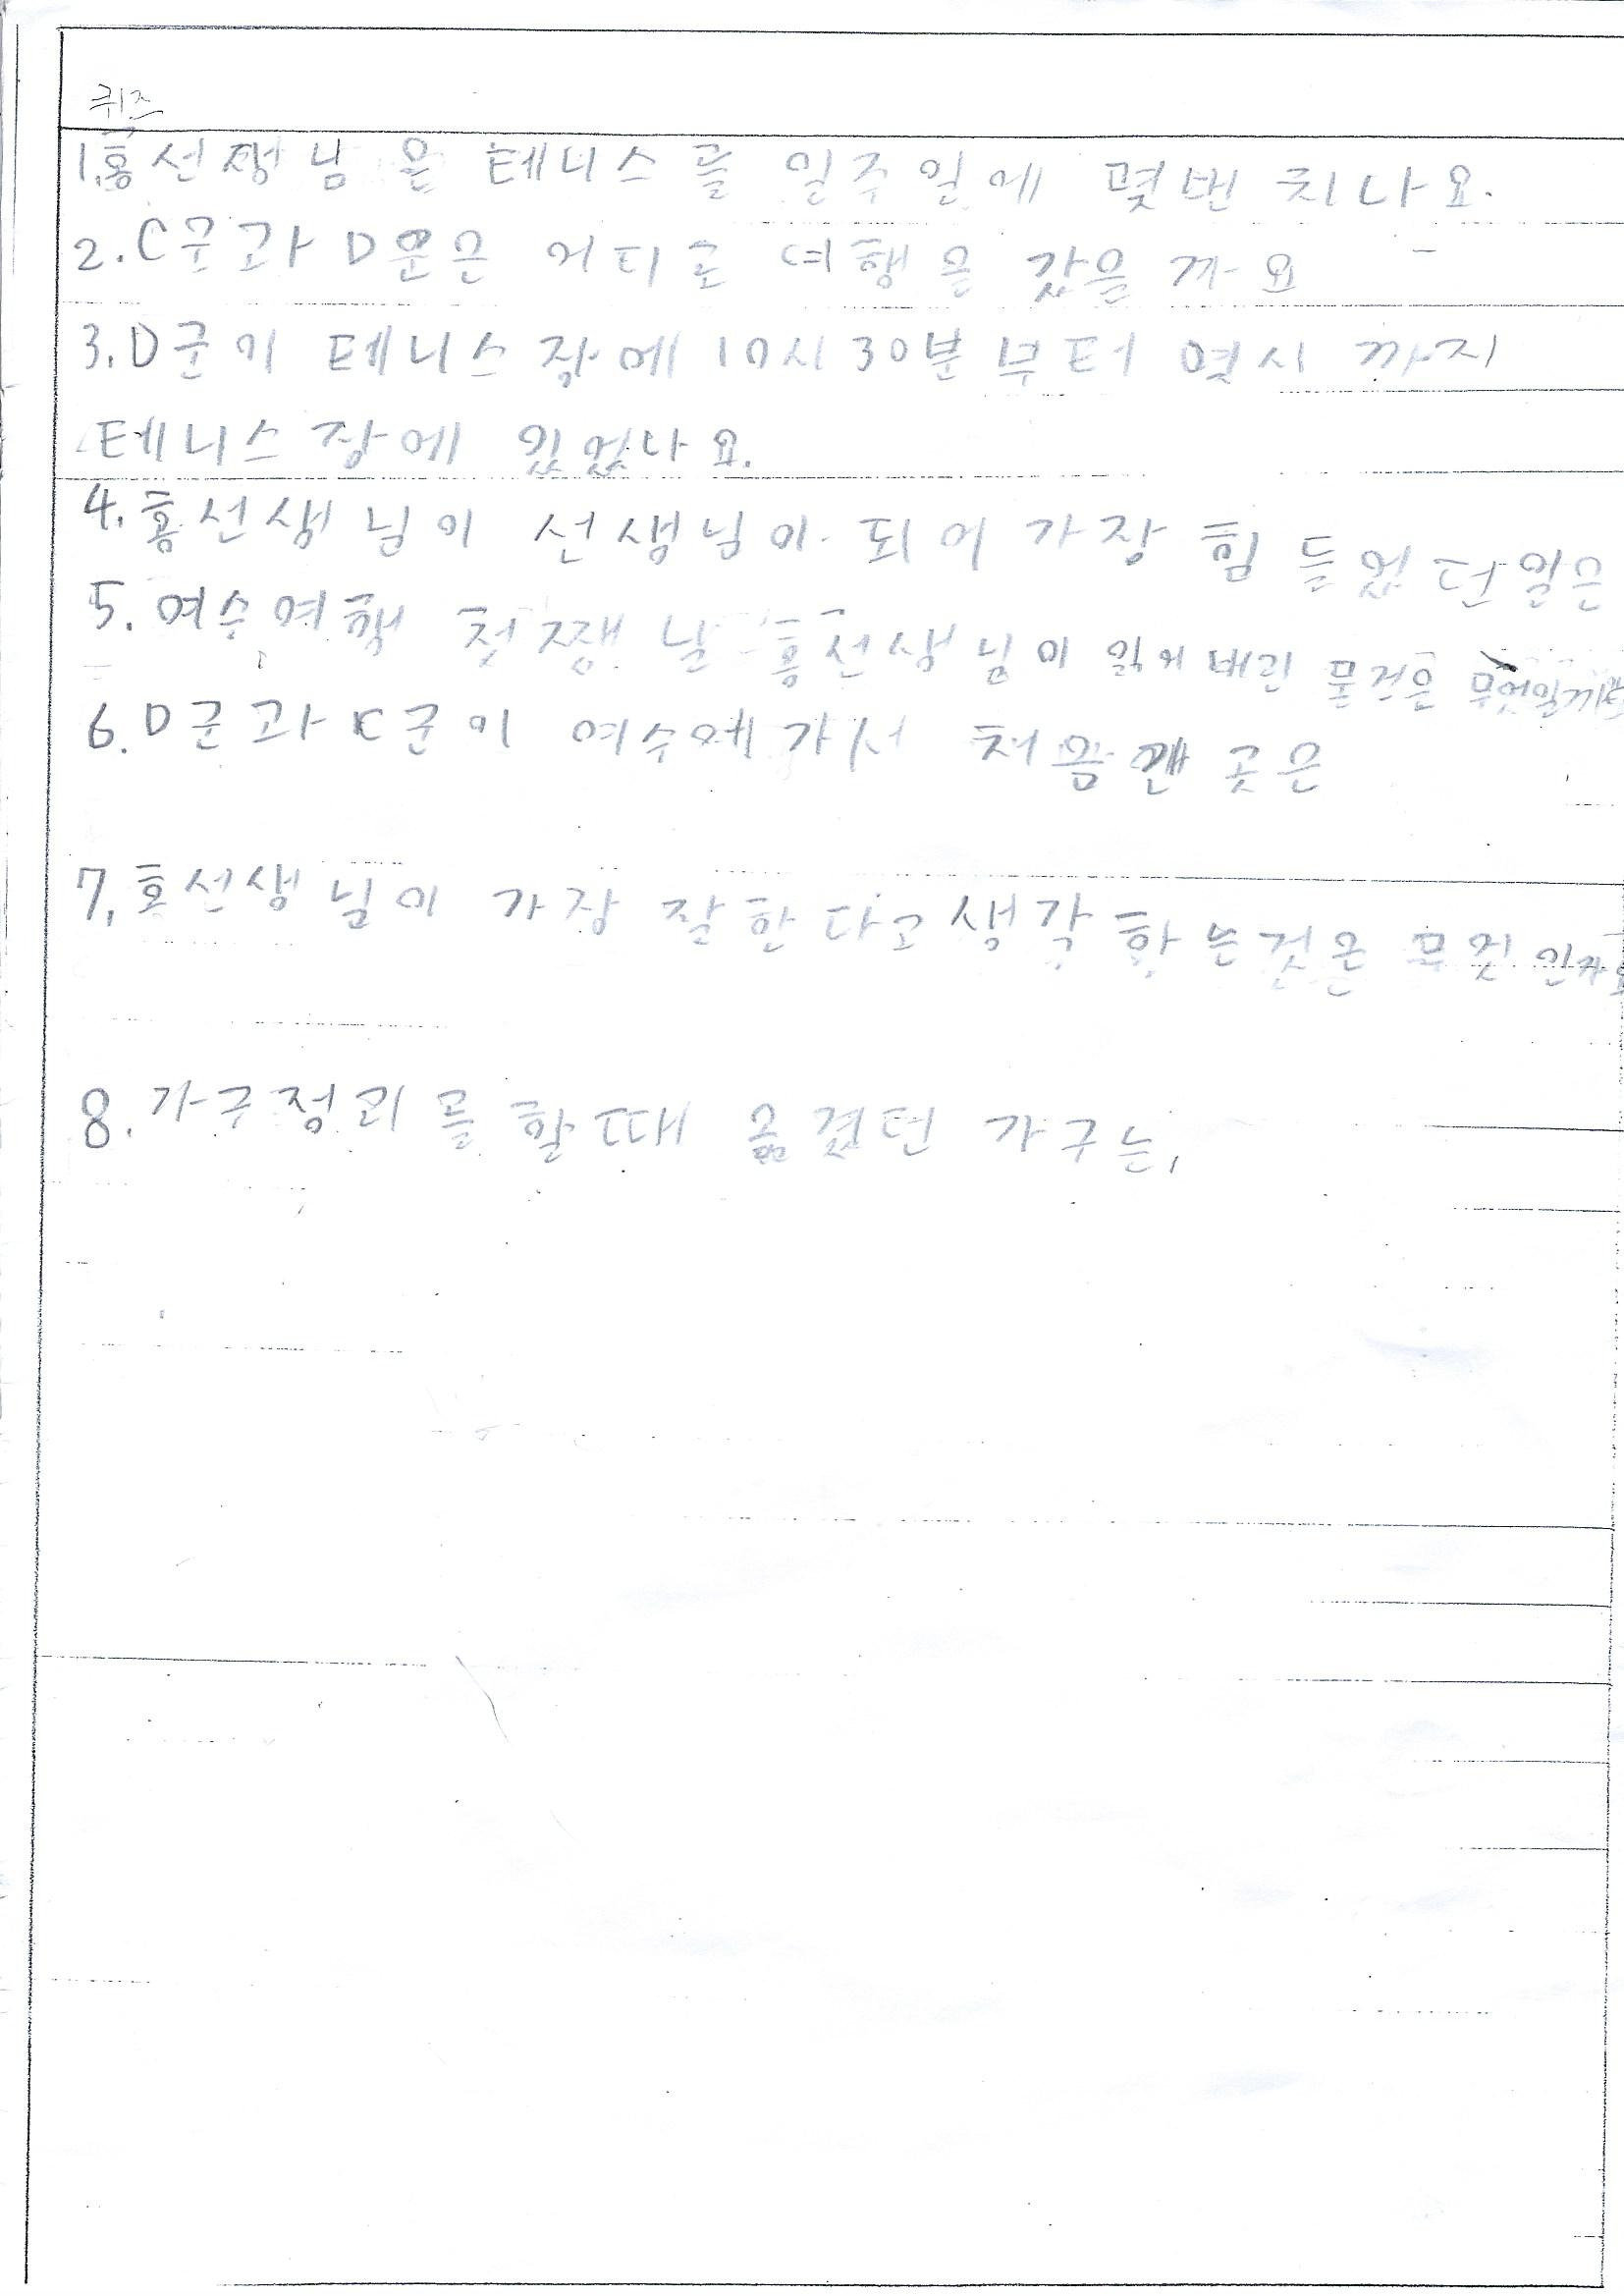 퀴즈
1. 홍선쟁님은 테니스를 일주일에 몇번 치나요.
2. C군과 D군은 어디로 여행을 갔을까요
3. D군이 테니스장에 10시 30분부터 몇시까지
테니스장에 있었나요.
4. 홍선생님이 선생님이 되어 가장 힘들었던일은
5. 여수여행 첫쨋날 홍선생님이 잃어버린 물건은 무엇일까요
6. D군과 C군이 여수에 가서 처음 간 곳은
7. 홍선생님이 가장 잘한다고 생각하는것은 무엇인가요
8. 가구정리를 할때 옮겼던 가구는,